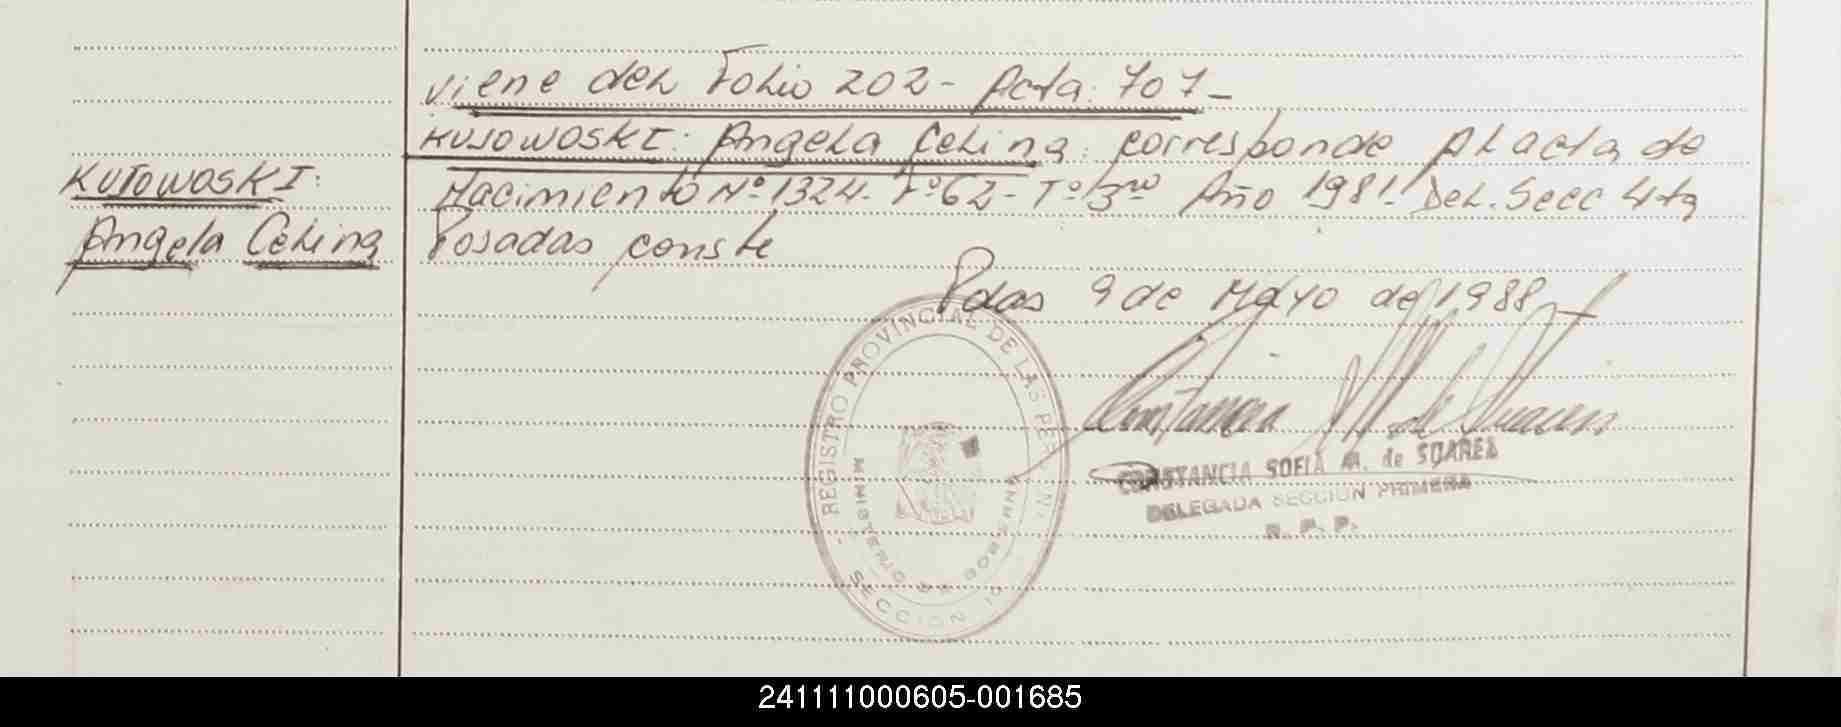 viene del Folio 202 - Acta: 707 -
KUSOWOSKI: Angela Celina: corresponde al acta de
KUTOWOSKI:
Nacimiento Nº 1324- Fº 62- Tº 3ro Año 1981- Del. Secc 4ta
Angela Celina
Posadas conste
Pdas 9 de Mayo de 1988
REGISTRO PROVINCIAL DE LAS PER
MINISTERIO DE GOBIERNO
SECCION 1º
CONSTANCIA SOFIA M. de SUAREZ
DELEGADA SECCION PRIMERA
R. P. P.
241111000605-001685